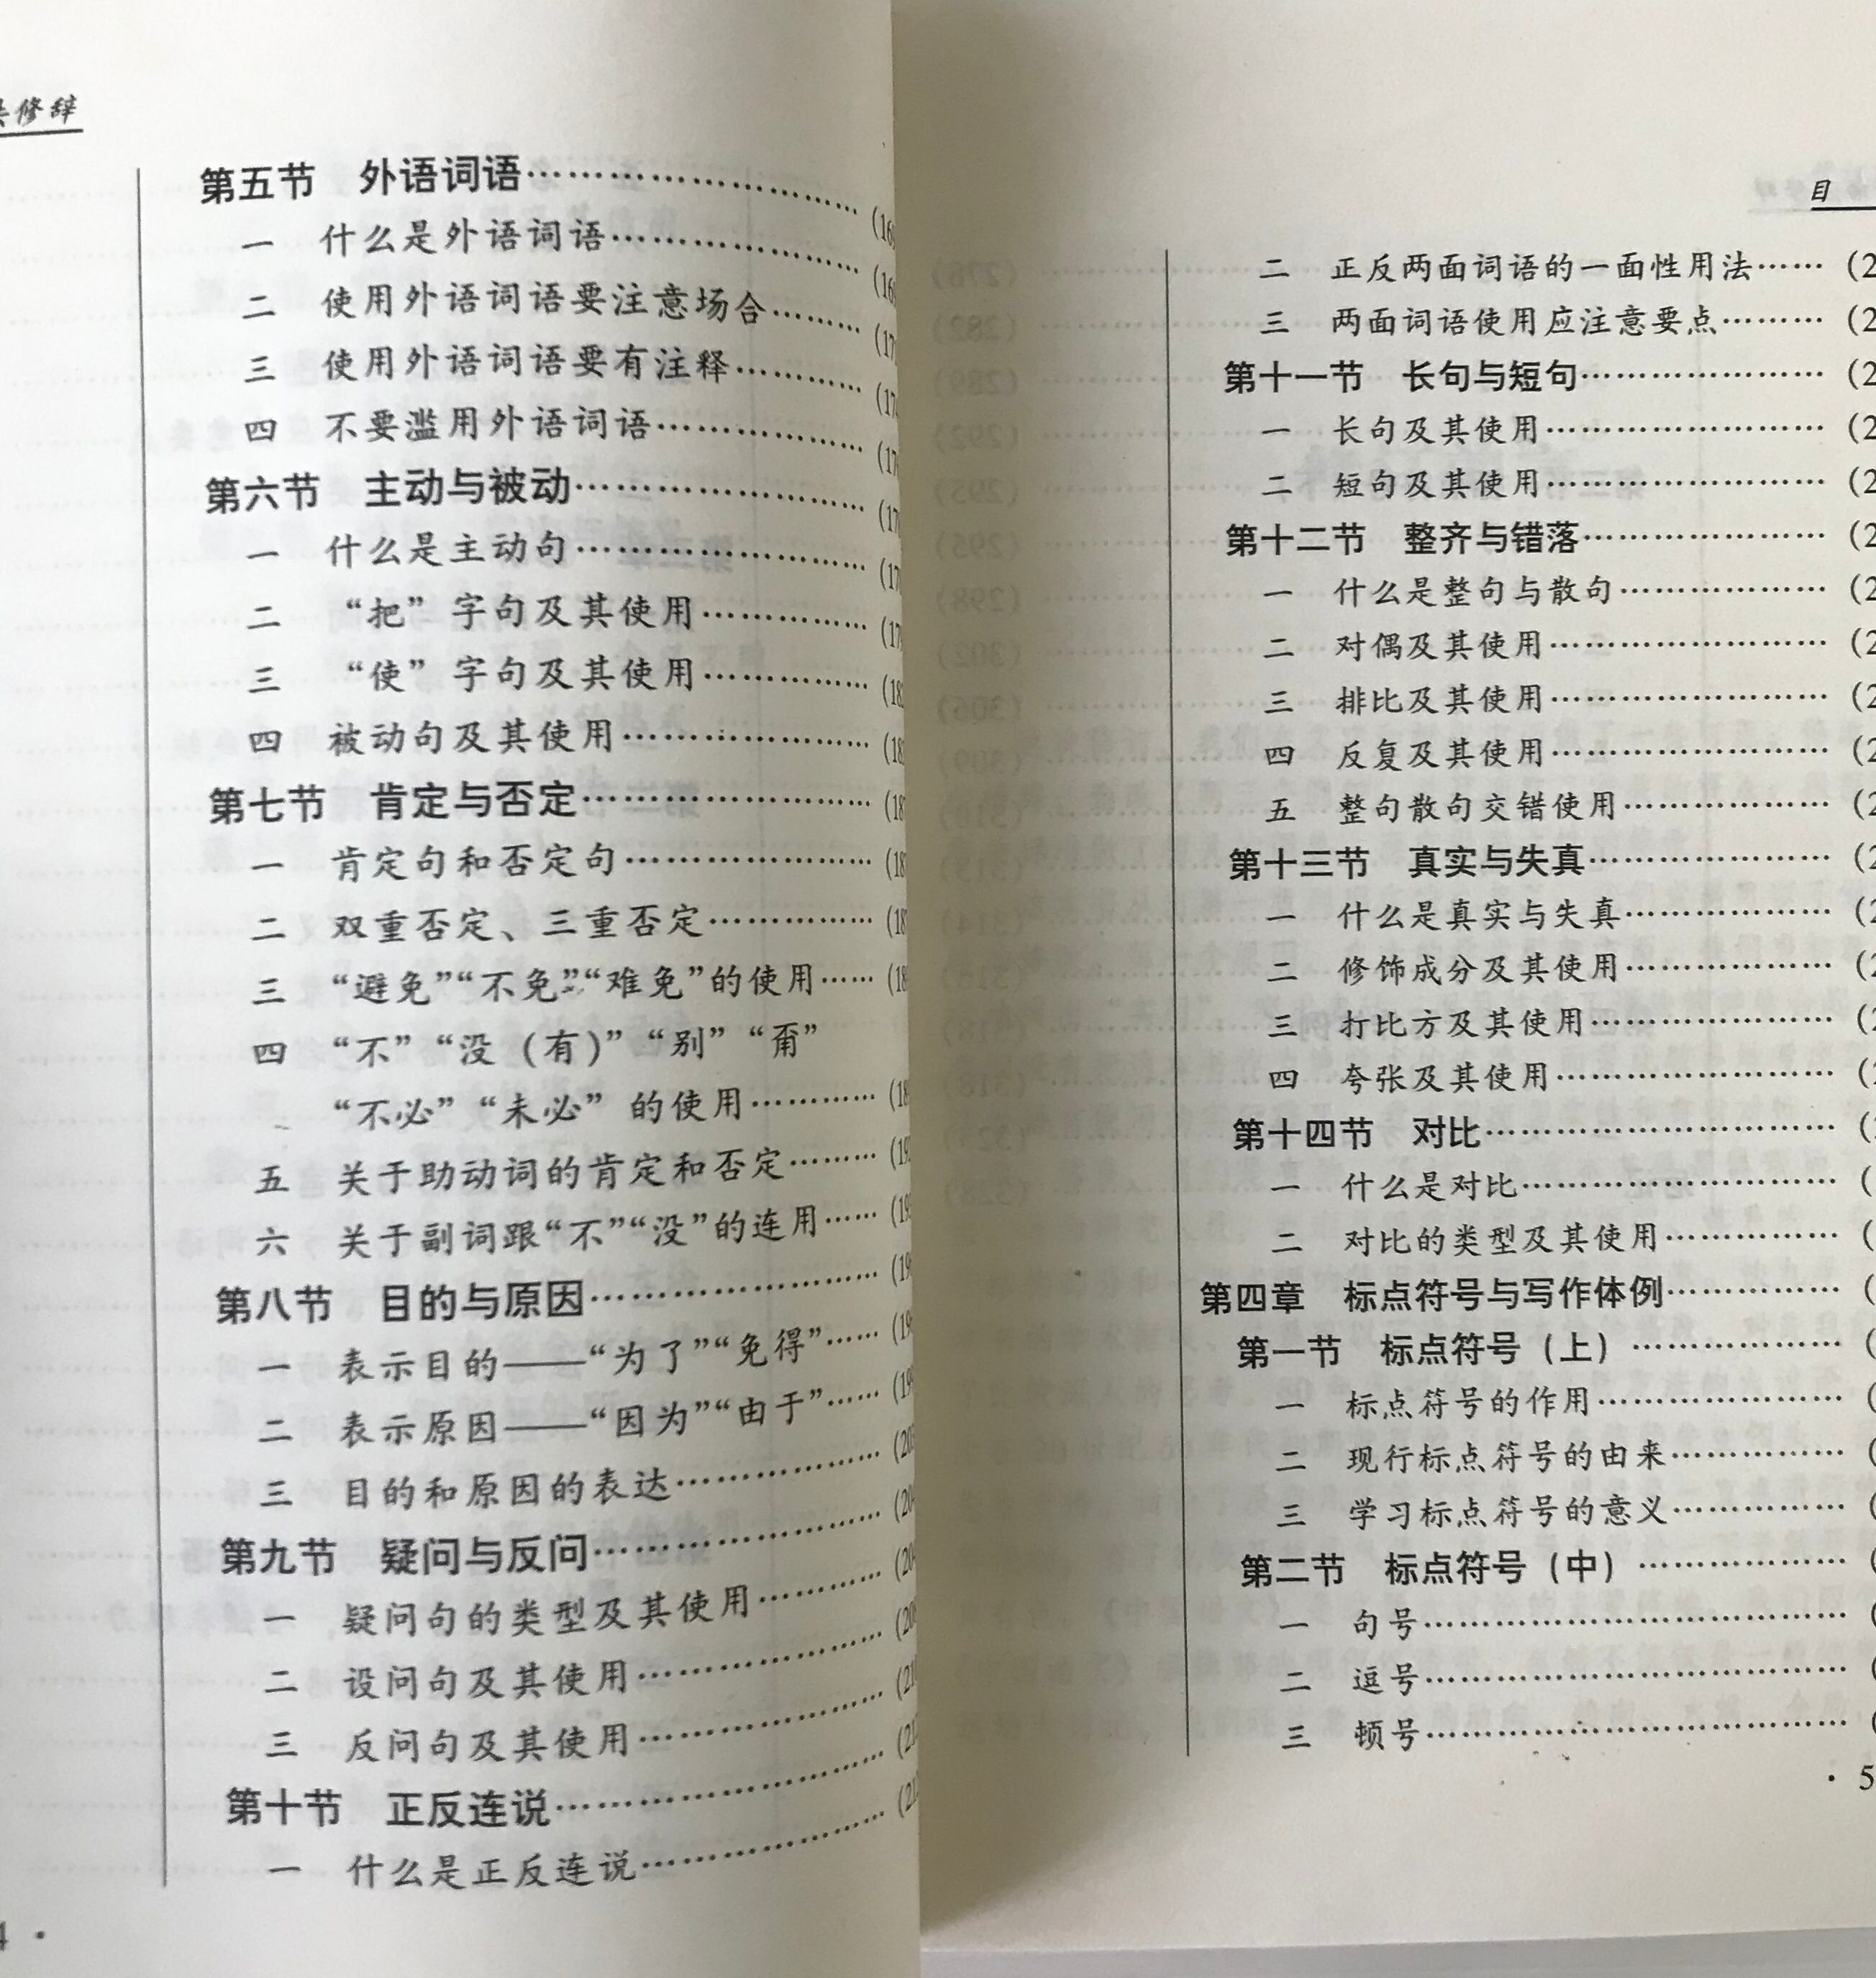 修辞
第五节 外语词语……………………
一 什么是外语词语………………
二 使用外语词语要注意场合………
三 使用外语词语要有注释…………
四 不要滥用外语词语………………
第六节 主动与被动……………………
一 什么是主动句……………………
二 “把”字句及其使用……………
三 “使”字句及其使用……………
四 被动句及其使用…………………
第七节 肯定与否定……………………
一 肯定句和否定句…………………
二 双重否定、三重否定……………
三 “避免”“不免”“难免”的使用……
四 “不”“没（有）”“别”“甭”
“不必”“未必”的使用…………
五 关于助动词的肯定和否定………
六 关于副词跟“不”“没”的连用……
第八节 目的与原因……………………
一 表示目的——“为了”“免得”……
二 表示原因——“因为”“由于”……
三 目的和原因的表达………………
第九节 疑问与反问……………………
一 疑问句的类型及其使用…………
二 设问句及其使用…………………
三 反问句及其使用…………………
第十节 正反连说………………………
一 什么是正反连说…………………
4 ·
目
二 正反两面词语的一面性用法…… (2
三 两面词语使用应注意要点……… (2
第十一节 长句与短句………………… (2
一 长句及其使用…………………… (2
二 短句及其使用…………………… (2
第十二节 整齐与错落………………… (2
一 什么是整句与散句……………… (2
二 对偶及其使用…………………… (2
三 排比及其使用…………………… (2
四 反复及其使用…………………… (2
五 整句散句交错使用……………… (2
第十三节 真实与失真………………… (2
一 什么是真实与失真……………… (2
二 修饰成分及其使用……………… (2
三 打比方及其使用…………………
四 夸张及其使用……………………
第十四节 对比…………………………
一 什么是对比………………………
二 对比的类型及其使用……………
第四章 标点符号与写作体例……………
第一节 标点符号（上）………………
一 标点符号的作用…………………
二 现行标点符号的由来……………
三 学习标点符号的意义……………
第二节 标点符号（中）………………
一 句号………………………………
二 逗号………………………………
三 顿号………………………………
· 5